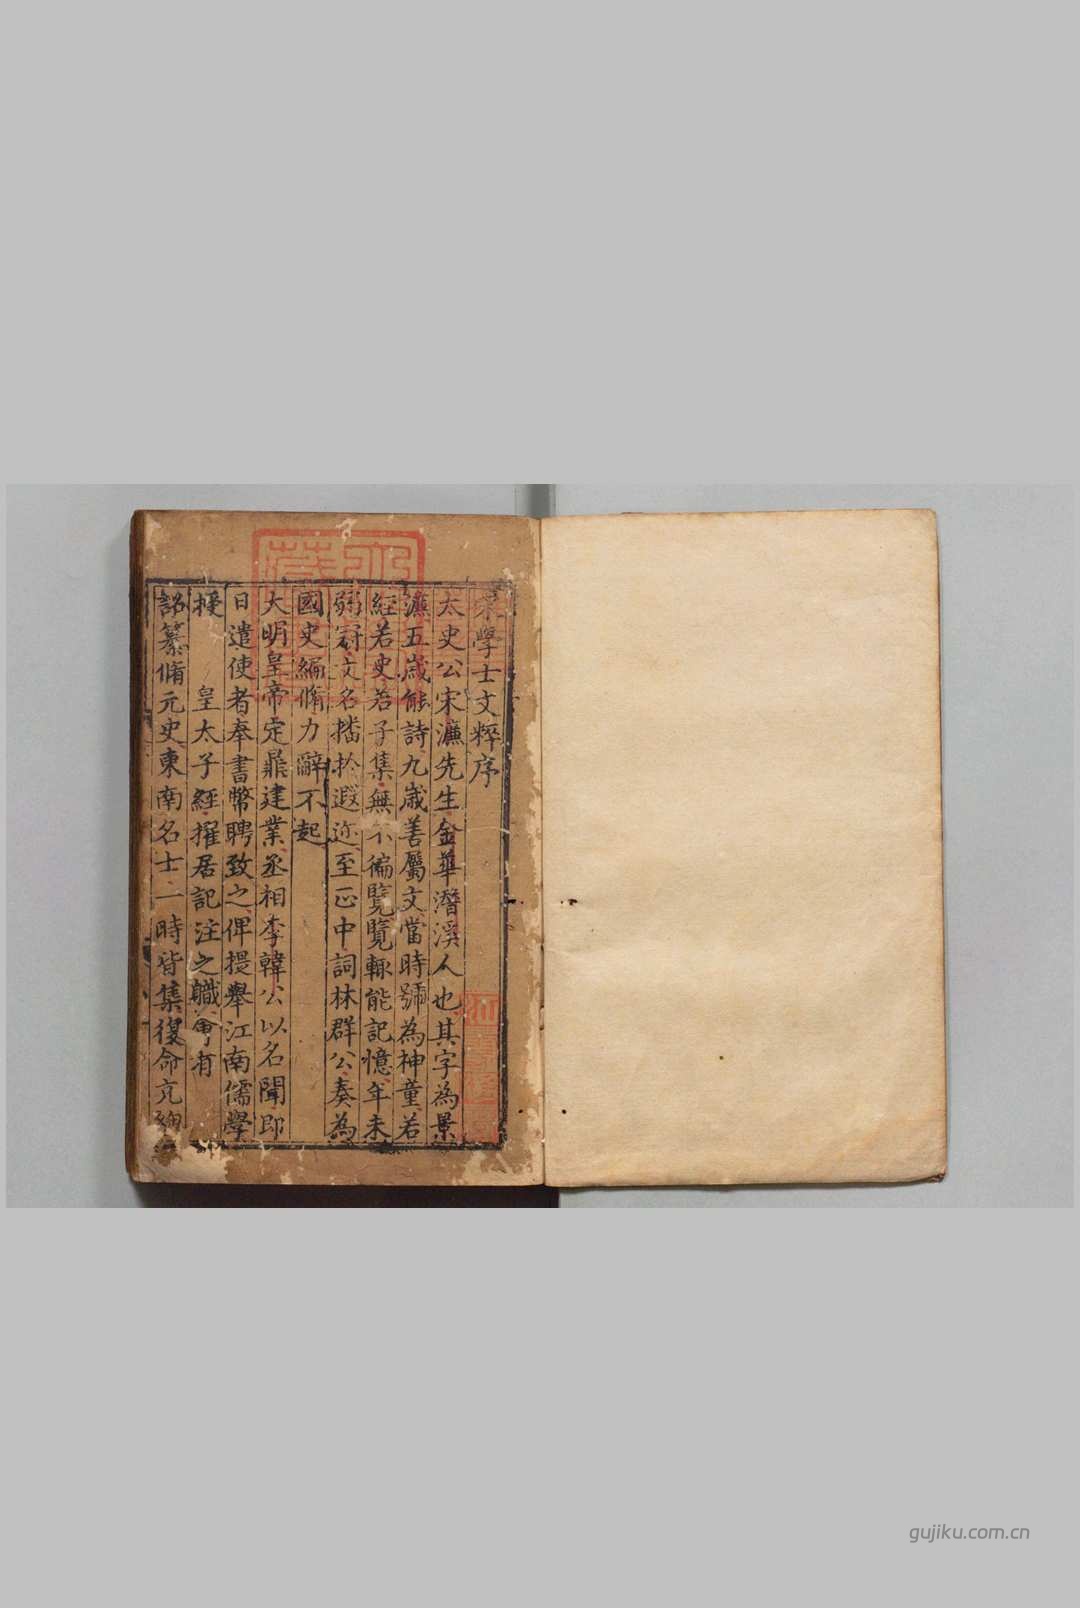 宋學士文粹序
太史公宋濂先生金華潛溪人也其字為景
濂五歲能詩九歲善屬文當時號為神童若
經若史若子集無不徧覽覽輒能記憶年未
弱冠文名播於遐迩至正中詞林群公奏為
國史編脩力辭不起
大明皇帝定鼎建業丞相李韓公以名聞即
日遣使者奉書幣聘致之俾提舉江南儒學
授 皇太子經擢居記注之職會有
詔纂脩元史東南名士一時皆集復命充總
gujiku.com.cn